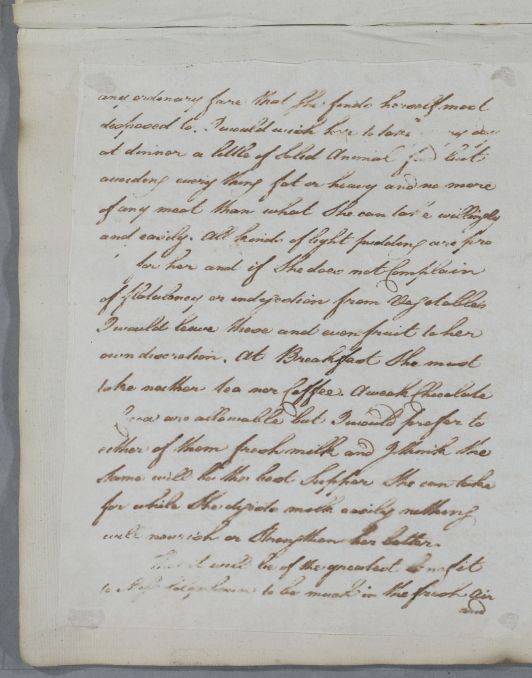 any ordinary fare that She finds herself most
disposed to. I would wish her to take day
at dinner a little of Solid Animal food but
avoiding every thing fat or heavy and no more
of any meat than what She can take willingly
and easily. All kinds of light pudding are pro
for her and if She does not Complain
of flatulency or indigestion from Vegetables
I would leave those and even fruit to her
own discretion. At Breakfast She must
take neither tea nor Coffee. A weak Chocolate
are allowable but I would prefer to
either of them fresh milk and I think the
Same will be the best Supper She can take
for while She digests milk easily nothing
will nourish or Strengthen her better.
That it will be of the greatest benefit
to Miss to be much in the fresh air
and